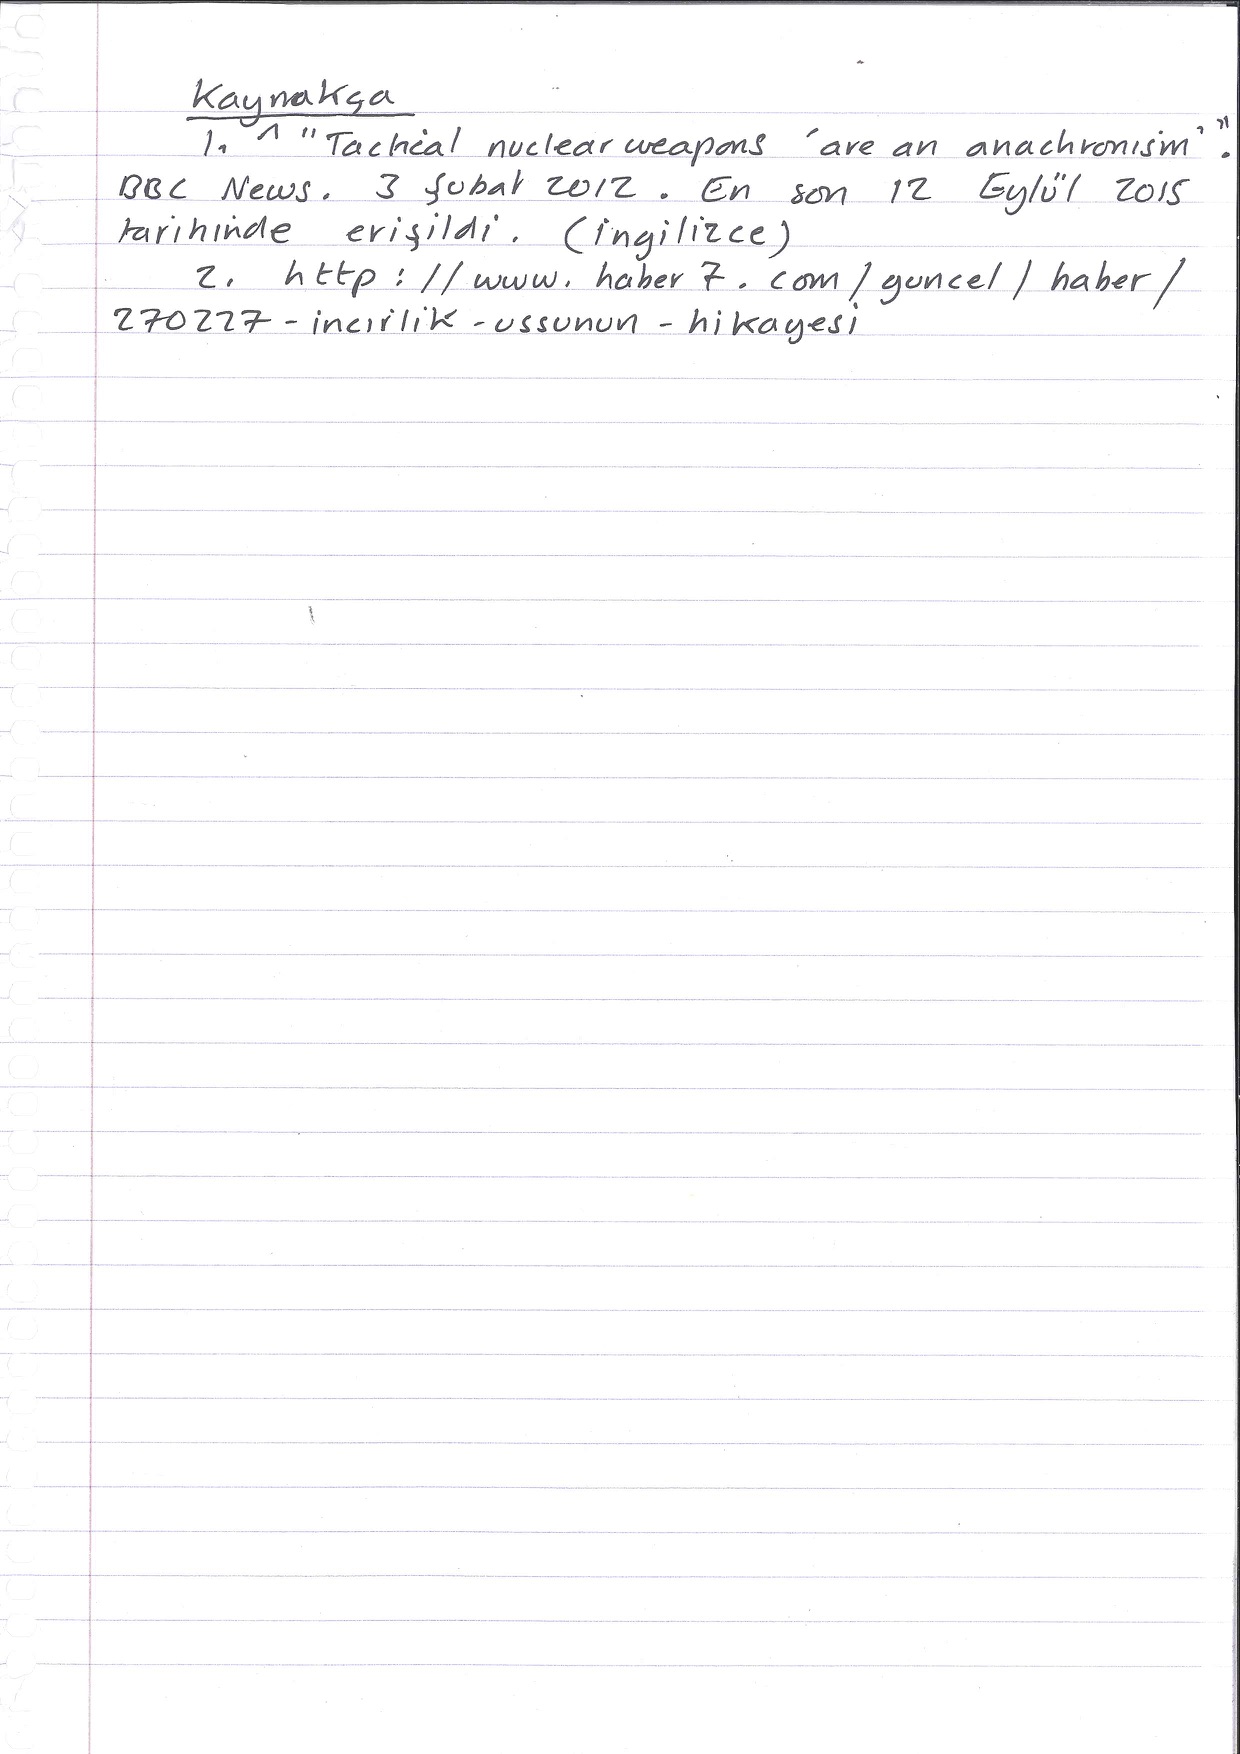 Kaynakça
1. ^ "Tactical nuclear weapons 'are an anachronism'".
BBC News. 3 Şubat 2012. En son 12 Eylül 2015
tarihinde erişildi. (ingilizce)
2. http://www.haber7.com/guncel/haber/
270227-incirlik-ussunun-hikayesi